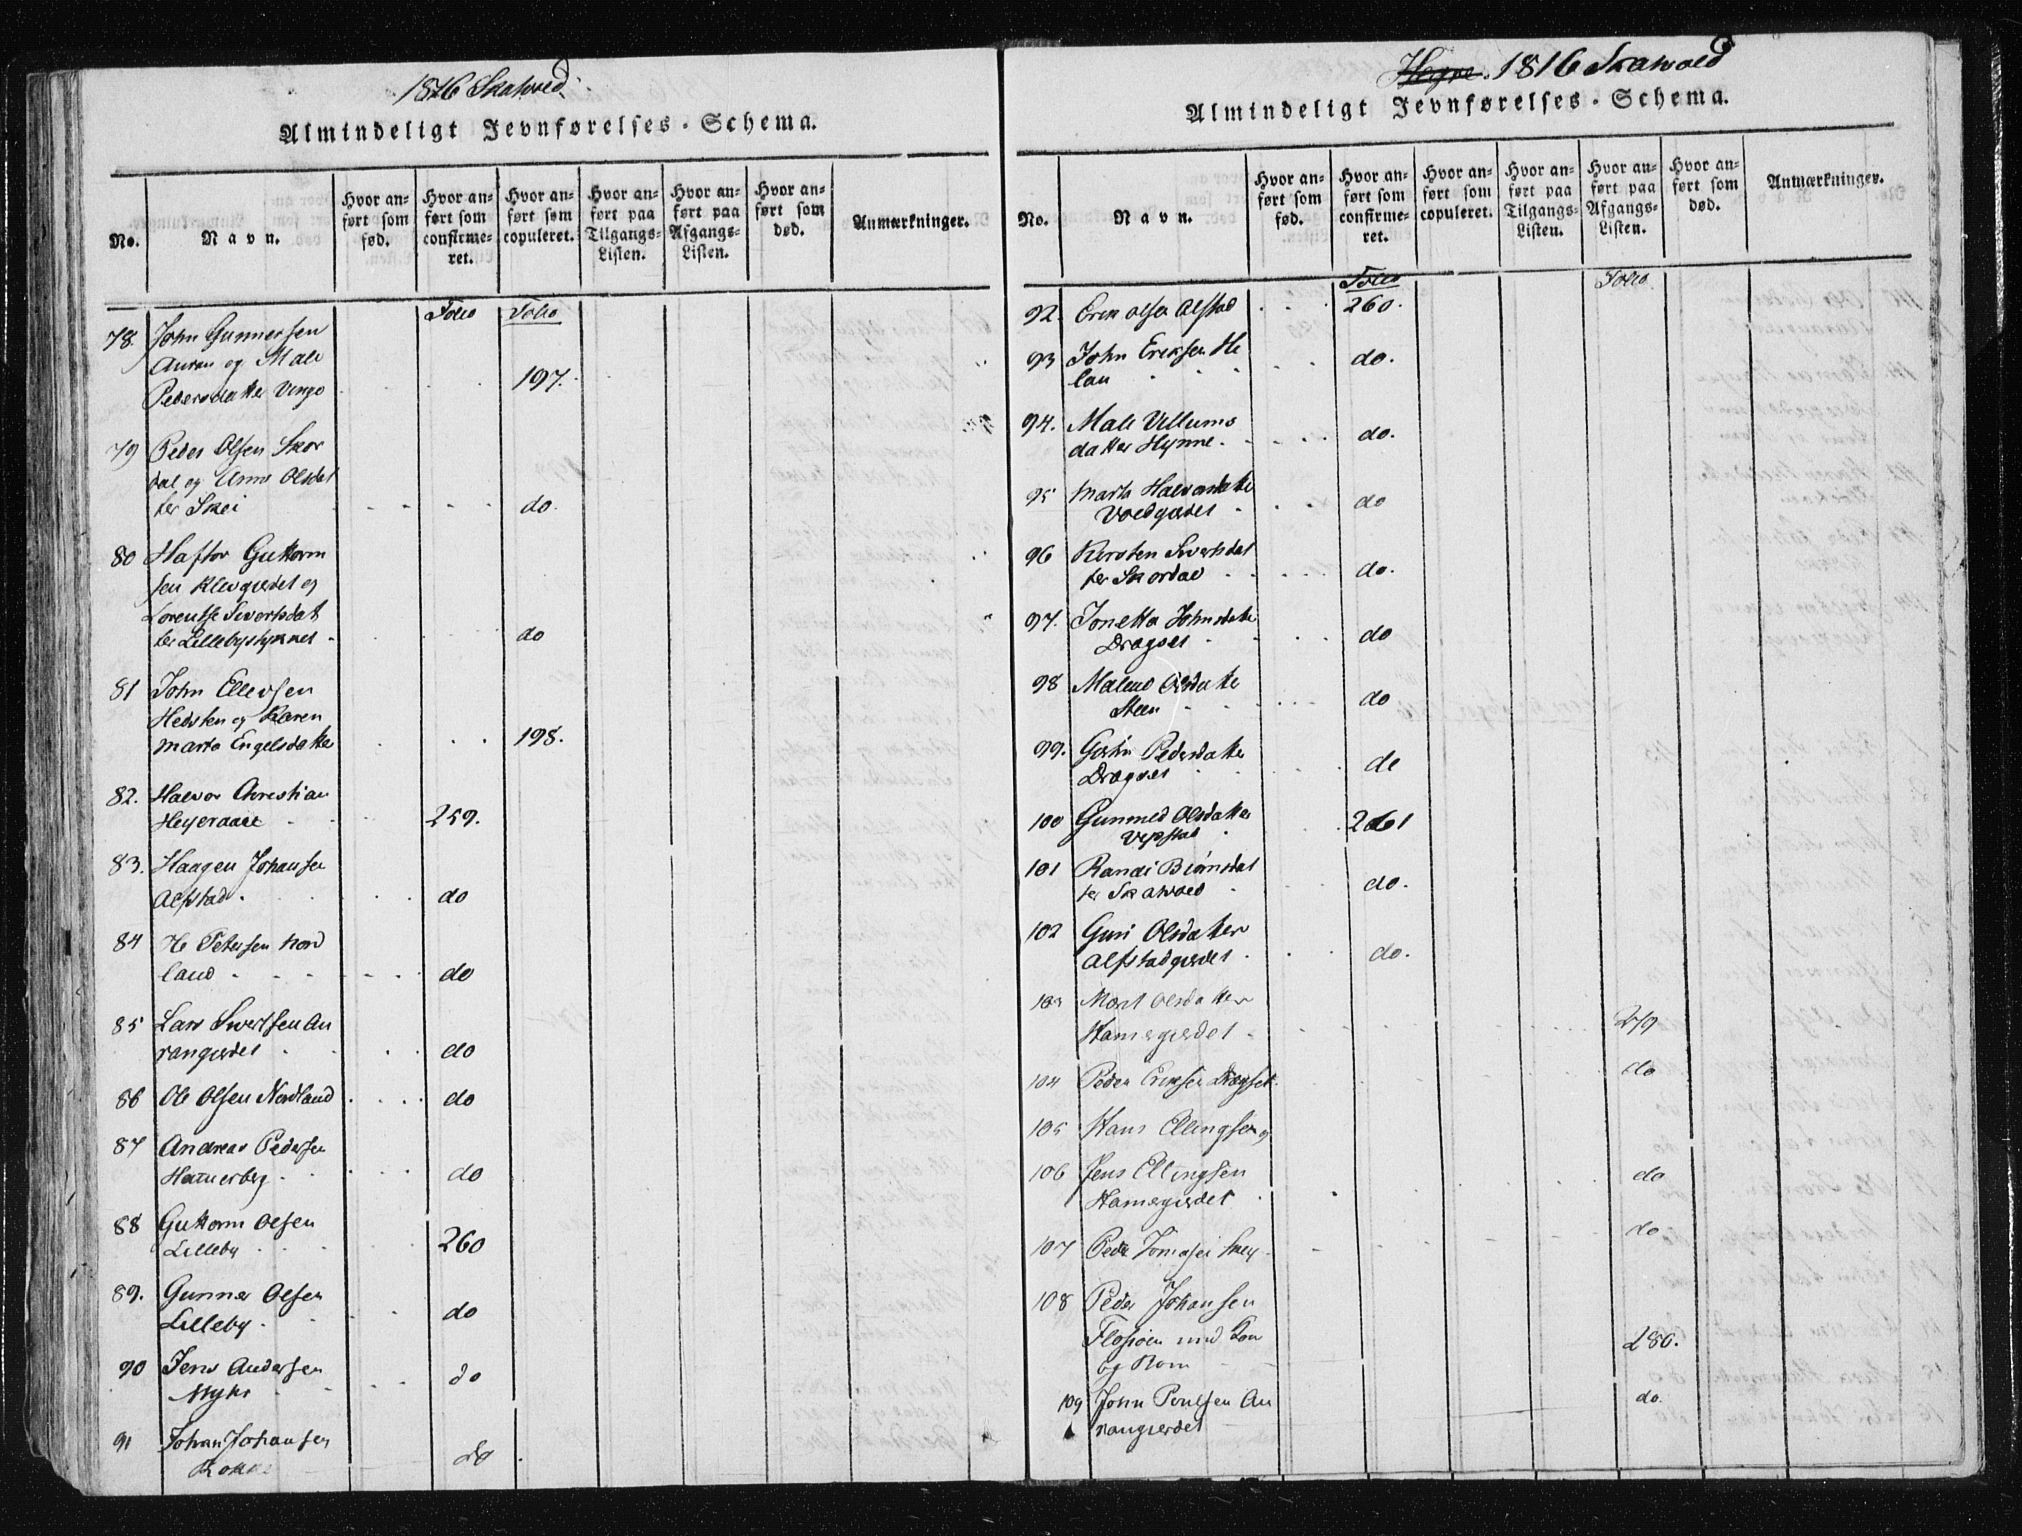 1816 Skatvold.
Almindeligt Jevnførelses-Schema.
No.
Navn.
Hvor anført som fød.
Hvor anført som confirmeret.
Hvor anført som copuleret.
Hvor anført paa Tilgangs-Listen.
Hvor anført paa Afgangs-Listen.
Hvor anført som død.
Anmærkninger.
Folio Folio
78. John Gunnersen
Auran og Mali
Pedersdatter Vinge 197.
79 Peder Olsen Skor
dal og Anne Olsdat
ter Skei do.
80 Haftor Guttorm
sen Klevgierdet og
Lorentse Sivertsdat
ter Lillebystykket do
81 John Ellevsen
Hedsten og Karen
Marta Engelsdatter 198.
82. Halvor Christian
Heyeraase 259.
83. Haagen Johansen
Alfstad. do
84 Petersen Nord
land do
85 Lars Sivertsen Au
rangierdet do
86 Ole Olsen Nordland do
87 Andreas Pedersen
Hammerberg do
88 Guttorm Olsen
Lilleby 260
89. Gunner Olsen
Lilleby do
90 Jens Andersen
Myhr do
91 Johan Johansen
do
Hegre. 1816 Skatvold
Almindeligt Jevnførelses-Schema.
No.
Navn.
Hvor anført som fød.
Hvor anført som confirmeret.
Hvor anført som copuleret.
Hvor anført paa Tilgangs-Listen.
Hvor anført paa Afgangs-Listen.
Hvor anført som død.
Anmærkninger.
Folio Folio
92. Erik Olsen Alfstad 260.
93 John Eriksen He
lan do.
94. Mali Villums
datter Hynne do.
95 Marta Halvorsdatter
Voldgierdet do
96 Kirsten Sivertsdat
ter Skordal do.
97. Jonetta Johnsdatter
Dragset do
98 Malene Olsdatter
Steen do
99. Gertin Pedersdatter
Dragset do
100 Gunnild Olsdatter
261
101 Randi Biörnsdat
ter Skatvold do.
102 Guri Olsdatter
Alfstadgierdet do.
103 Marit Olsdatter
Hamergierdet 279
104 Peder Eriksen Dragset do
105 Hans Ellingsen og
106 Jens Ellingsen
Hamergierdet do
107 Peder Tomasen Skey do
108 Peder Johansen
Flosioen med Kone
og Born 280.
109 John Poulsen Au
rangierdet do.